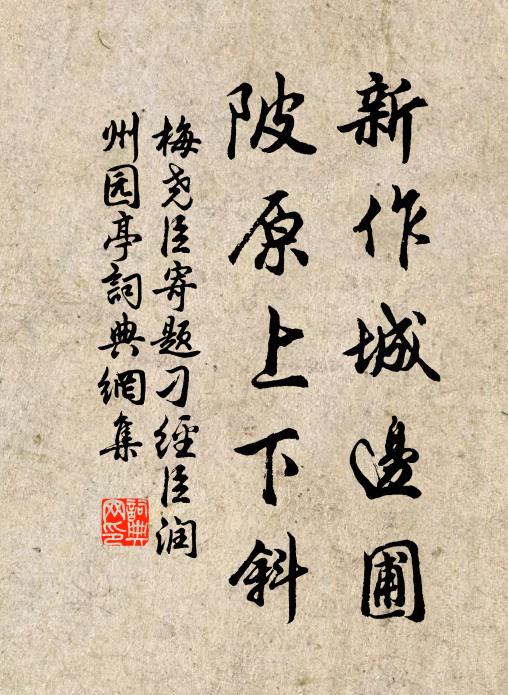 新作城邊圃
陂原上下斜
梅尧臣寄题刁經臣润
州园亭詞典網集
詞典
网印